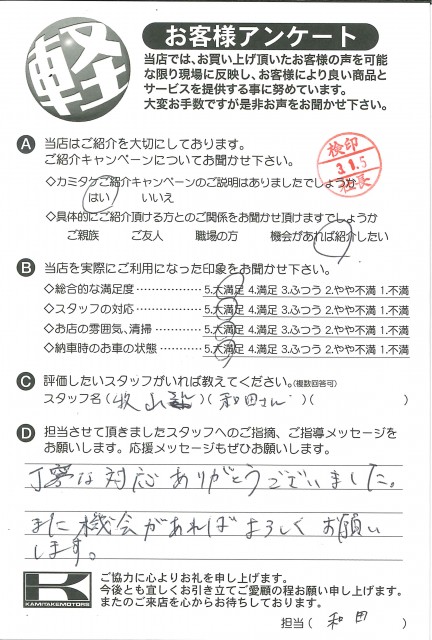 軽
お客様アンケート
当店では、お買い上げ頂いたお客様の声を可能
な限り現場に反映し、お客様により良い商品と
サービスを提供する事に努めています。
大変お手数ですが是非お声をお聞かせ下さい。
A 当店はご紹介を大切にしております。
ご紹介キャンペーンについてお聞かせ下さい。
検印
3.1.5
社長
◇カミタケご紹介キャンペーンのご説明はありましたでしょうか
はい いいえ
◇具体的にご紹介頂ける方とのご関係をお聞かせ頂けますでしょうか
ご親族 ご友人 職場の方 機会があれば紹介したい
B 当店を実際にご利用になった印象をお聞かせ下さい。
◇総合的な満足度 ·················· 5.大満足 4.満足 3.ふつう 2.やや不満 1.不満
◇スタッフの対応 ·················· 5.大満足 4.満足 3.ふつう 2.やや不満 1.不満
◇お店の雰囲気、清掃 ············ 5.大満足 4.満足 3.ふつう 2.やや不満 1.不満
◇納車時のお車の状態 ············ 5.大満足 4.満足 3.ふつう 2.やや不満 1.不満
C 評価したいスタッフがいれば教えてください。(複数回答可)
スタッフ名 ( 牧山 )( 和田さん )( )
D 担当させて頂きましたスタッフへのご指摘、ご指導メッセージを
お願いします。応援メッセージもぜひお願いします。
丁寧な対応ありがとうございました。
また機会があればよろしくお願い
します。
K
KAMITAKEMOTORS
ご協力に心よりお礼を申し上げます。
今後とも宜しくお引き立てご愛顧の程お願い申し上げます。
またのご来店を心からお待ちしております。
担当 ( 和田 )